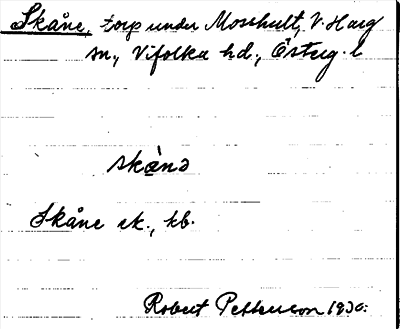 Skåne, torp under Moshult, V. Harg
sn., Vifolka hd., Österg. l
skå̀nə
Skåne sk., kb.
Robert Pettersson 1930.